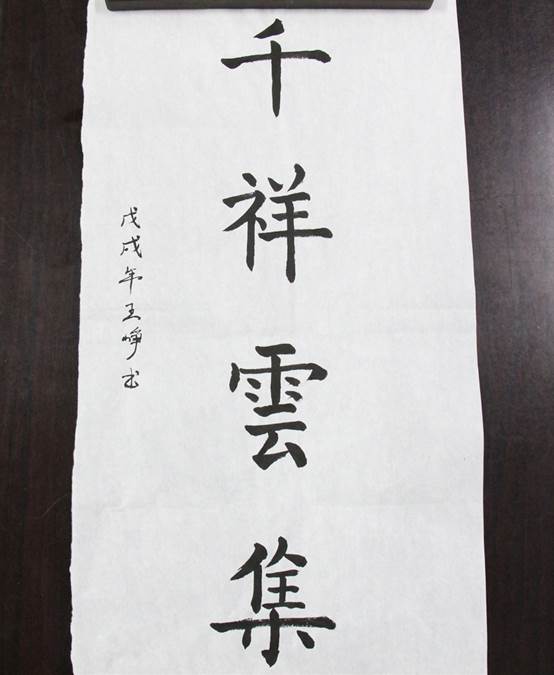 千祥雲集
戊戌年王峥书